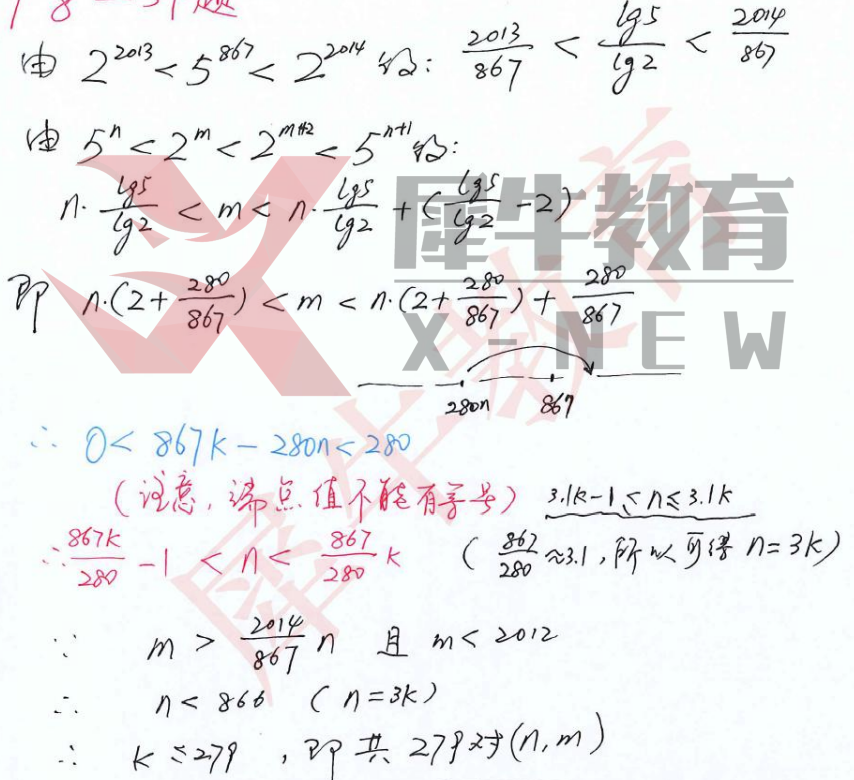 由 2^2013 < 5^867 < 2^2014 得: 2013/867 < lg5/lg2 < 2014/867
由 5^n < 2^m < 2^(m+2) < 5^(n+1) 得:
n·lg5/lg2 < m < n·lg5/lg2 + (lg5/lg2 - 2)
即 n·(2+280/867) < m < n·(2+280/867) + 280/867
280n 867
∴ 0 < 867k - 280n < 280
(注意, 端点值不能有等号) 3.1k-1 ≤ n ≤ 3.1k
∴ 867k/280 - 1 < n < 867/280 k (867/280 ≈ 3.1, 所以可得 n=3k)
∵ m > 2014/867 n 且 m < 2012
∴ n < 866 (n=3k)
∴ k ≤ 279, 即共 279对(n,m)
犀牛教育
X-NEW
犀牛教育